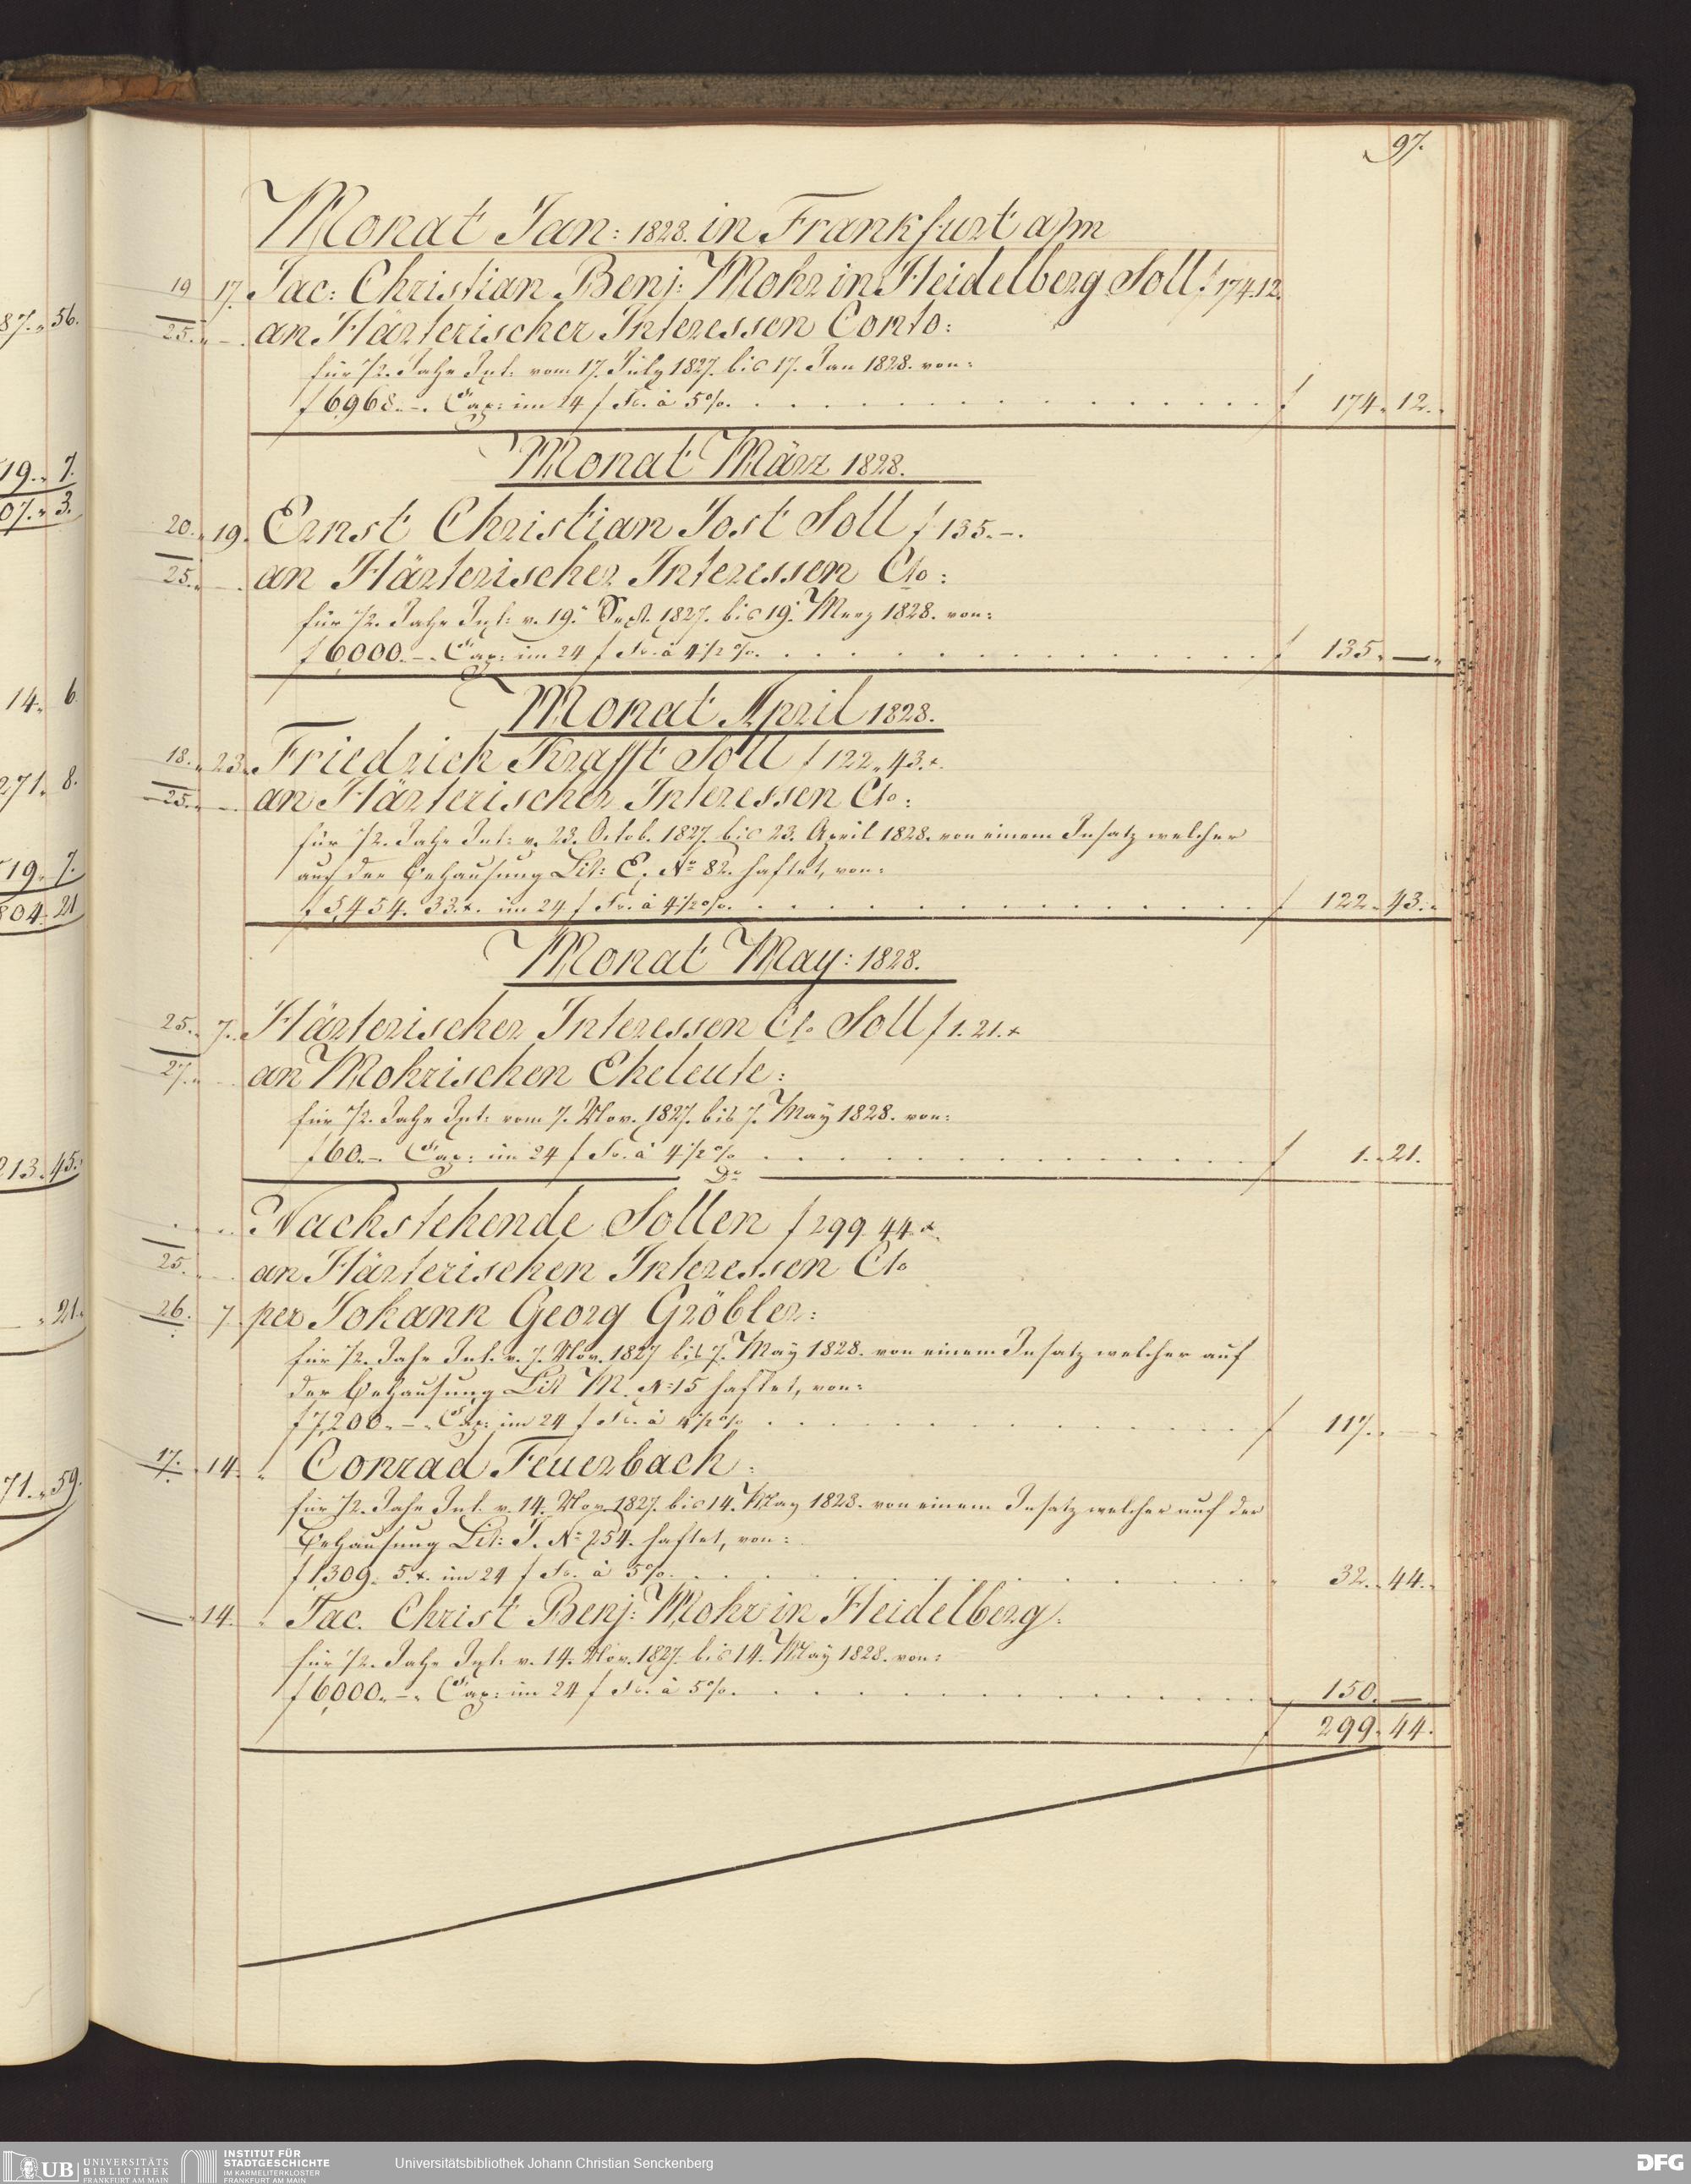 97.
Monat Jan: 1828. in Frankfurt a/m
19 17. Jac: Christian Benj: Mohr in Heidelberg Soll f 174.12.
25. „ – . an Härterischer Interessen Conto:
für 1/2. Jahr Int: vom 17. July 1827. bis 17. Jan 1828. von:
f 6,968. –. Cap: im 24 f Fs. à 5%. f 174. 12.
Monat März 1828.
20. 19. Ernst Christian Jost Soll f 135. –.
25. an Härterischer Interessen Cto:
für 1/2. Jahr Int: v. 19. Sept. 1827. bis 19. Merz 1828. von:
f 6000. –. Cap: im 24 f Fs. à 4 1/2 %. f 135. —
Monat April 1828.
18. 23. Friedrich Krafft Soll f 122. 43. x.
25. an Härterischer Interessen Cto:
für 1/2. Jahr Int: v. 23. Octob. 1827. bis 23. April 1828. von einem Insatz welcher
auf der Behausung Lit: E. No 82. haftet, von:
f 5,454. 33. x. im 24 f Fs. à 4 1/2 %. f 122. 43.
Monat May: 1828.
25. 7. Härterischer Interessen Cto Soll f 1. 21. x
27. an Mohrischen Eheleute:
für 1/2. Jahr Int: vom 7. Nov. 1827. bis 7. May 1828. von:
f 60. –. Cap: im 24 f Fs. à 4 1/2 % f 1. 21.
Do
Nachstehende Sollen f 299. 44. x.
25. an Härterischen Interessen Cto
26. 7 per Johann Georg Gröbler:
für 1/2. Jahr Int. v. 7. Nov. 1827 bis 7. May 1828. von einem Insatz welcher auf
der Behausung Lit M. No 15 haftet, von:
f 7,200. –. Cap: im 24 f Fs. à 4 1/2 % f 117.
17. 14. „ Conrad Feuerbach:
für 1/2. Jahr Int. v. 14. Nov. 1827. bis 14. May 1828. von einem Insatz welcher auf der
Behausung Lit: J. No 254. haftet, von:
f 1,309. 5. x. im 24 f Fs. à 5%. 32. 44.
14. „ Jac. Christ Benj: Mohr in Heidelberg:
für 1/2. Jahr Int: v. 14. Nov. 1827. bis 14. May 1828. von:
f 6,000. –. Cap: im 24 f Fs. à 5%. 150. —
f 299. 44.
87. 56.
19. 7.
07. 3.
14. 6.
271. 8.
19. 7.
804. 21
213. 45.
21.
71. 59.
UB UNIVERSITÄTS
BIBLIOTHEK
FRANKFURT AM MAIN
INSTITUT FÜR
STADTGESCHICHTE
IM KARMELITERKLOSTER
FRANKFURT AM MAIN
Universitätsbibliothek Johann Christian Senckenberg
DFG